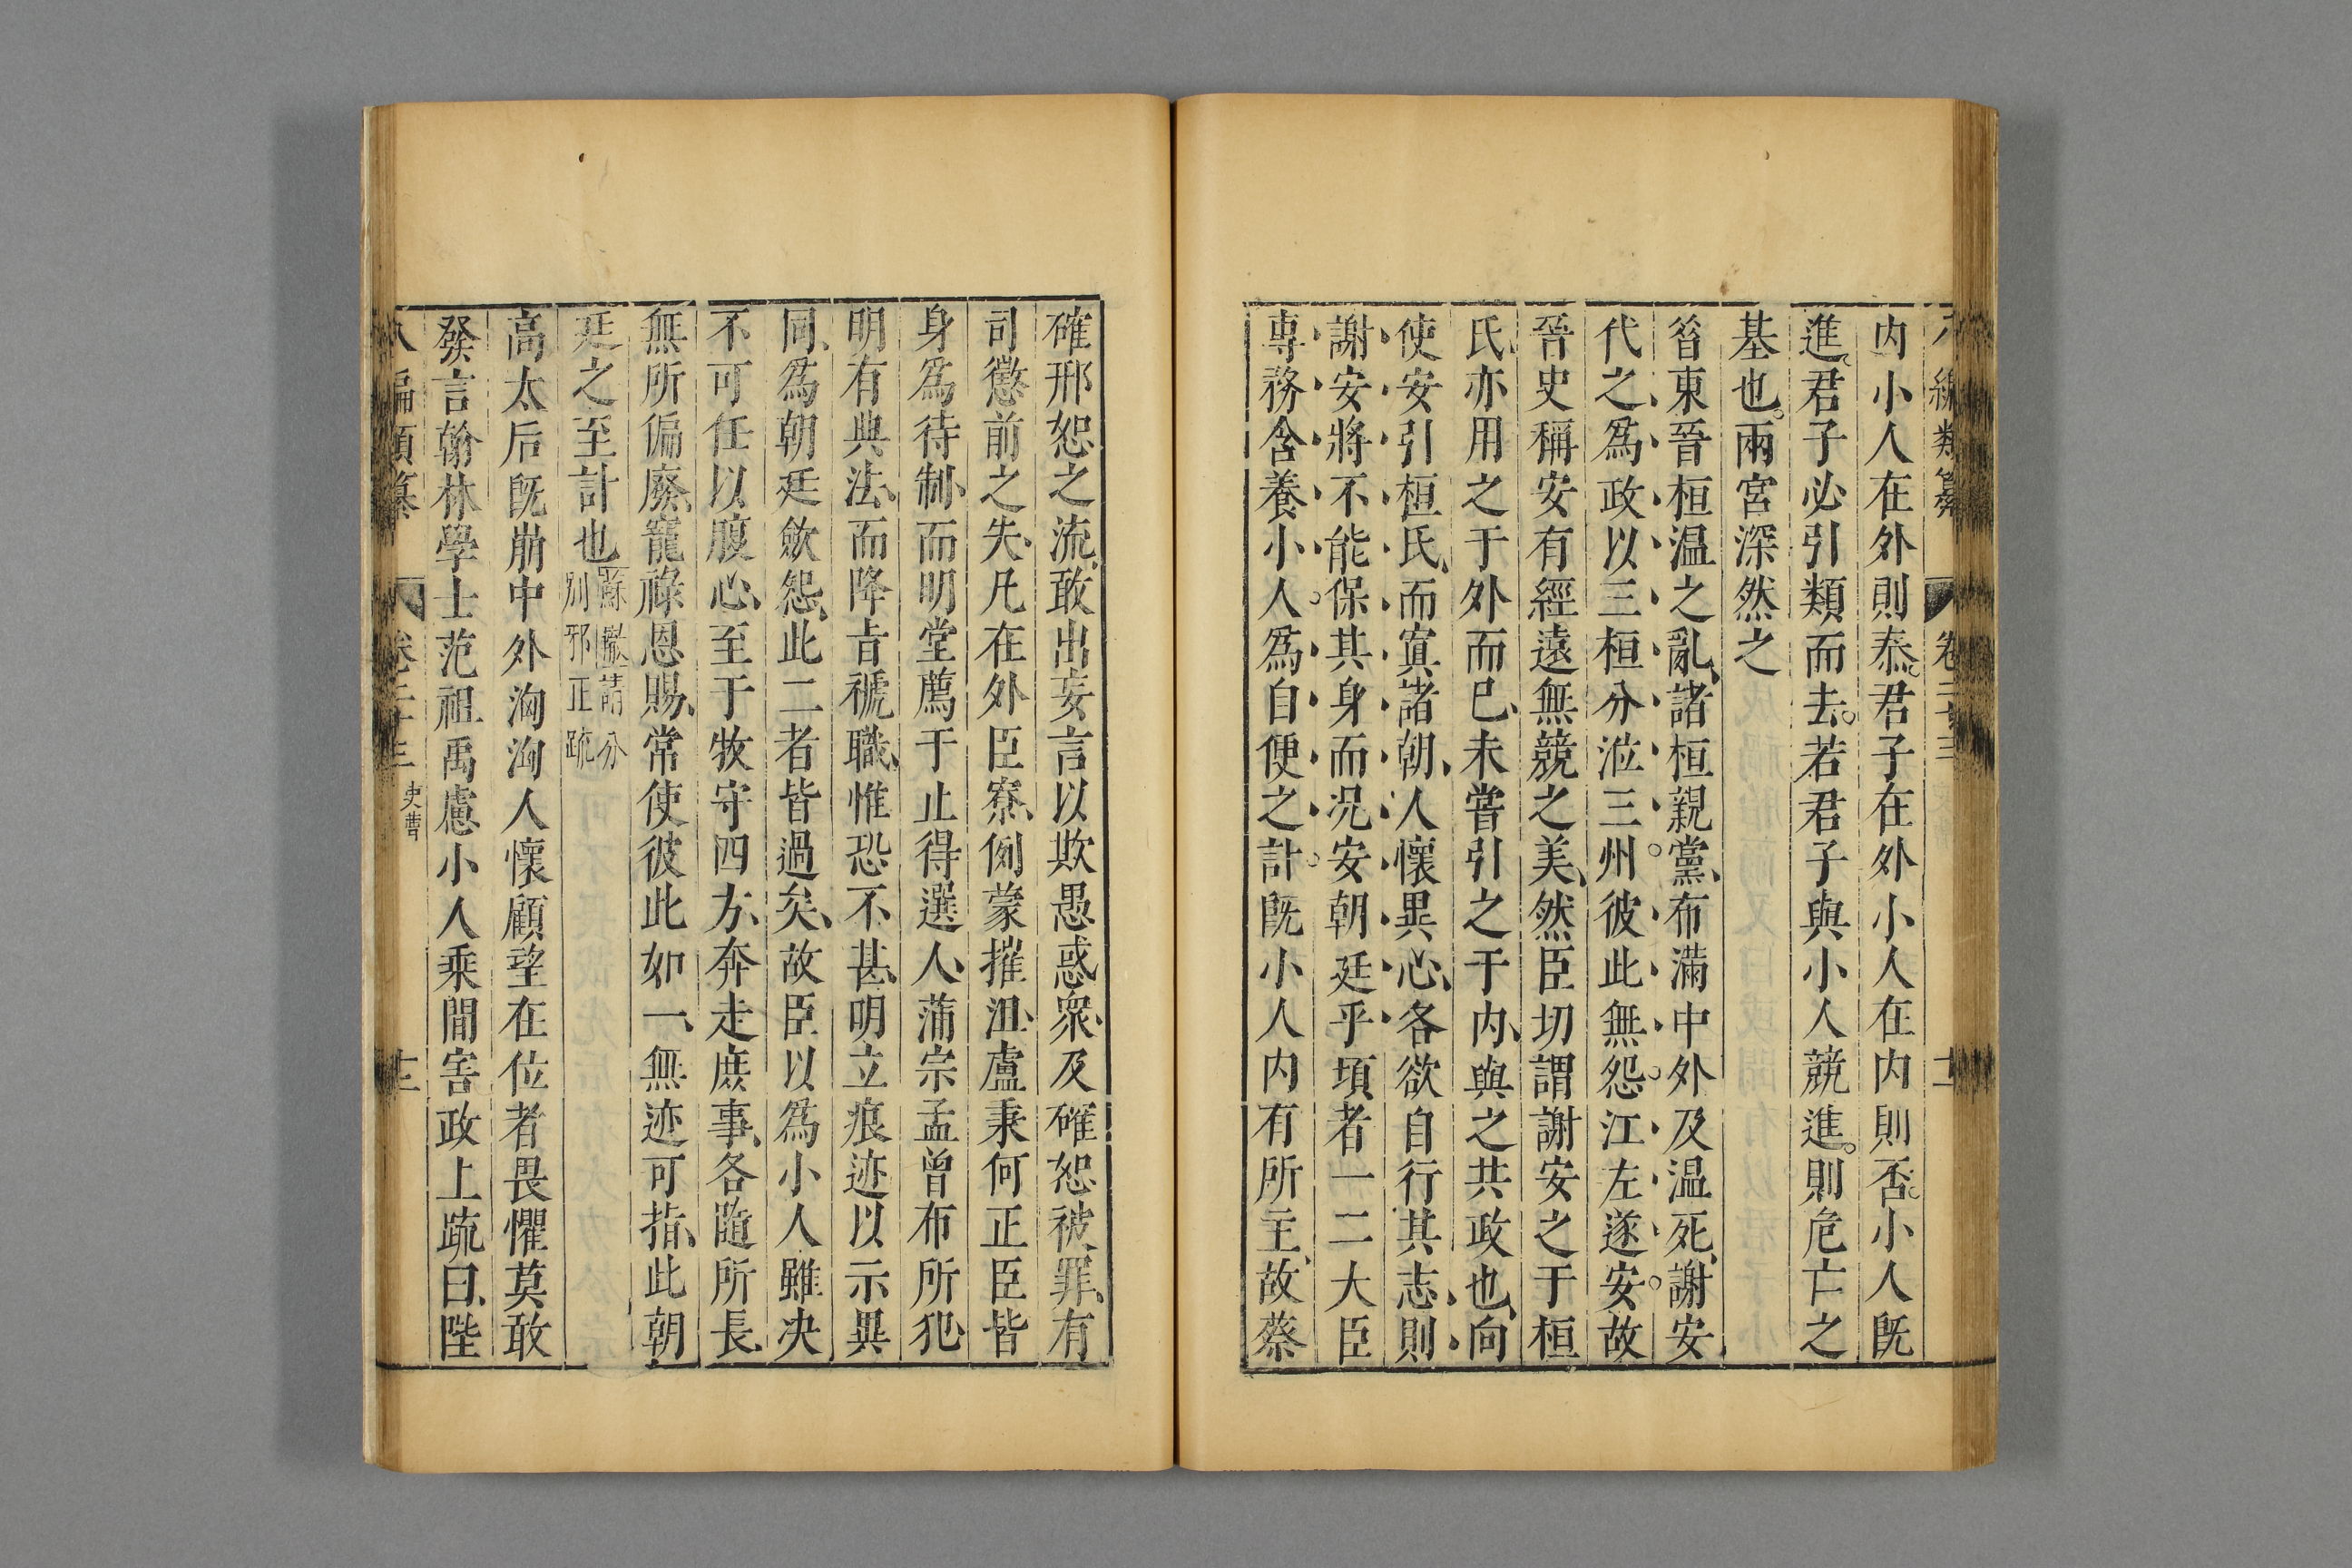 内小人在外則泰。君子在外小人在内則否。小人既
進。君子必引類而去。若君子與小人競進。則危亡之
基也。兩宮深然之
昝東晉桓温之亂、諸桓親黨、布滿中外及温死、謝安
代之、爲政以三桓分涖三州。彼此無怨。江左遂安。故
晉史稱安有經遠無競之美、然臣切謂謝安之于桓
氏、亦用之于外而已、未嘗引之于内、與之共政也、向
使安引桓氏、而寘諸朝、人懷異心、各欲自行其志、則
謝安將不能保其身而况安朝廷乎頃者一二大臣
專務含養小人。爲自便之計。既小人内有所主、故蔡
確邢恕之流、敢出妄言以欺愚惑衆、及確恕被罪、有
司懲前之失、凡在外臣寮、例蒙摧沮、盧秉何正臣皆
身爲待制、而明堂薦于止得選人、蒲宗孟曾布所犯
明有典法、而降㫖褫職、惟恐不甚、明立痕迹以示異
同、爲朝廷斂怨、此二者皆過矣、故臣以爲小人雖决
不可任以腹心、至于牧守四方、奔走庶事、各隨所長、
無所偏廢、寵祿恩賜、常使彼此如一、無迹可指、此朝
廷之至計也蘇轍請分
别邪正疏
高太后既崩中外洶洶人懷顧望在位者畏懼莫敢
發言翰林學士范祖禹慮小人乘間害政上疏曰、陛
卷二十三 史曹